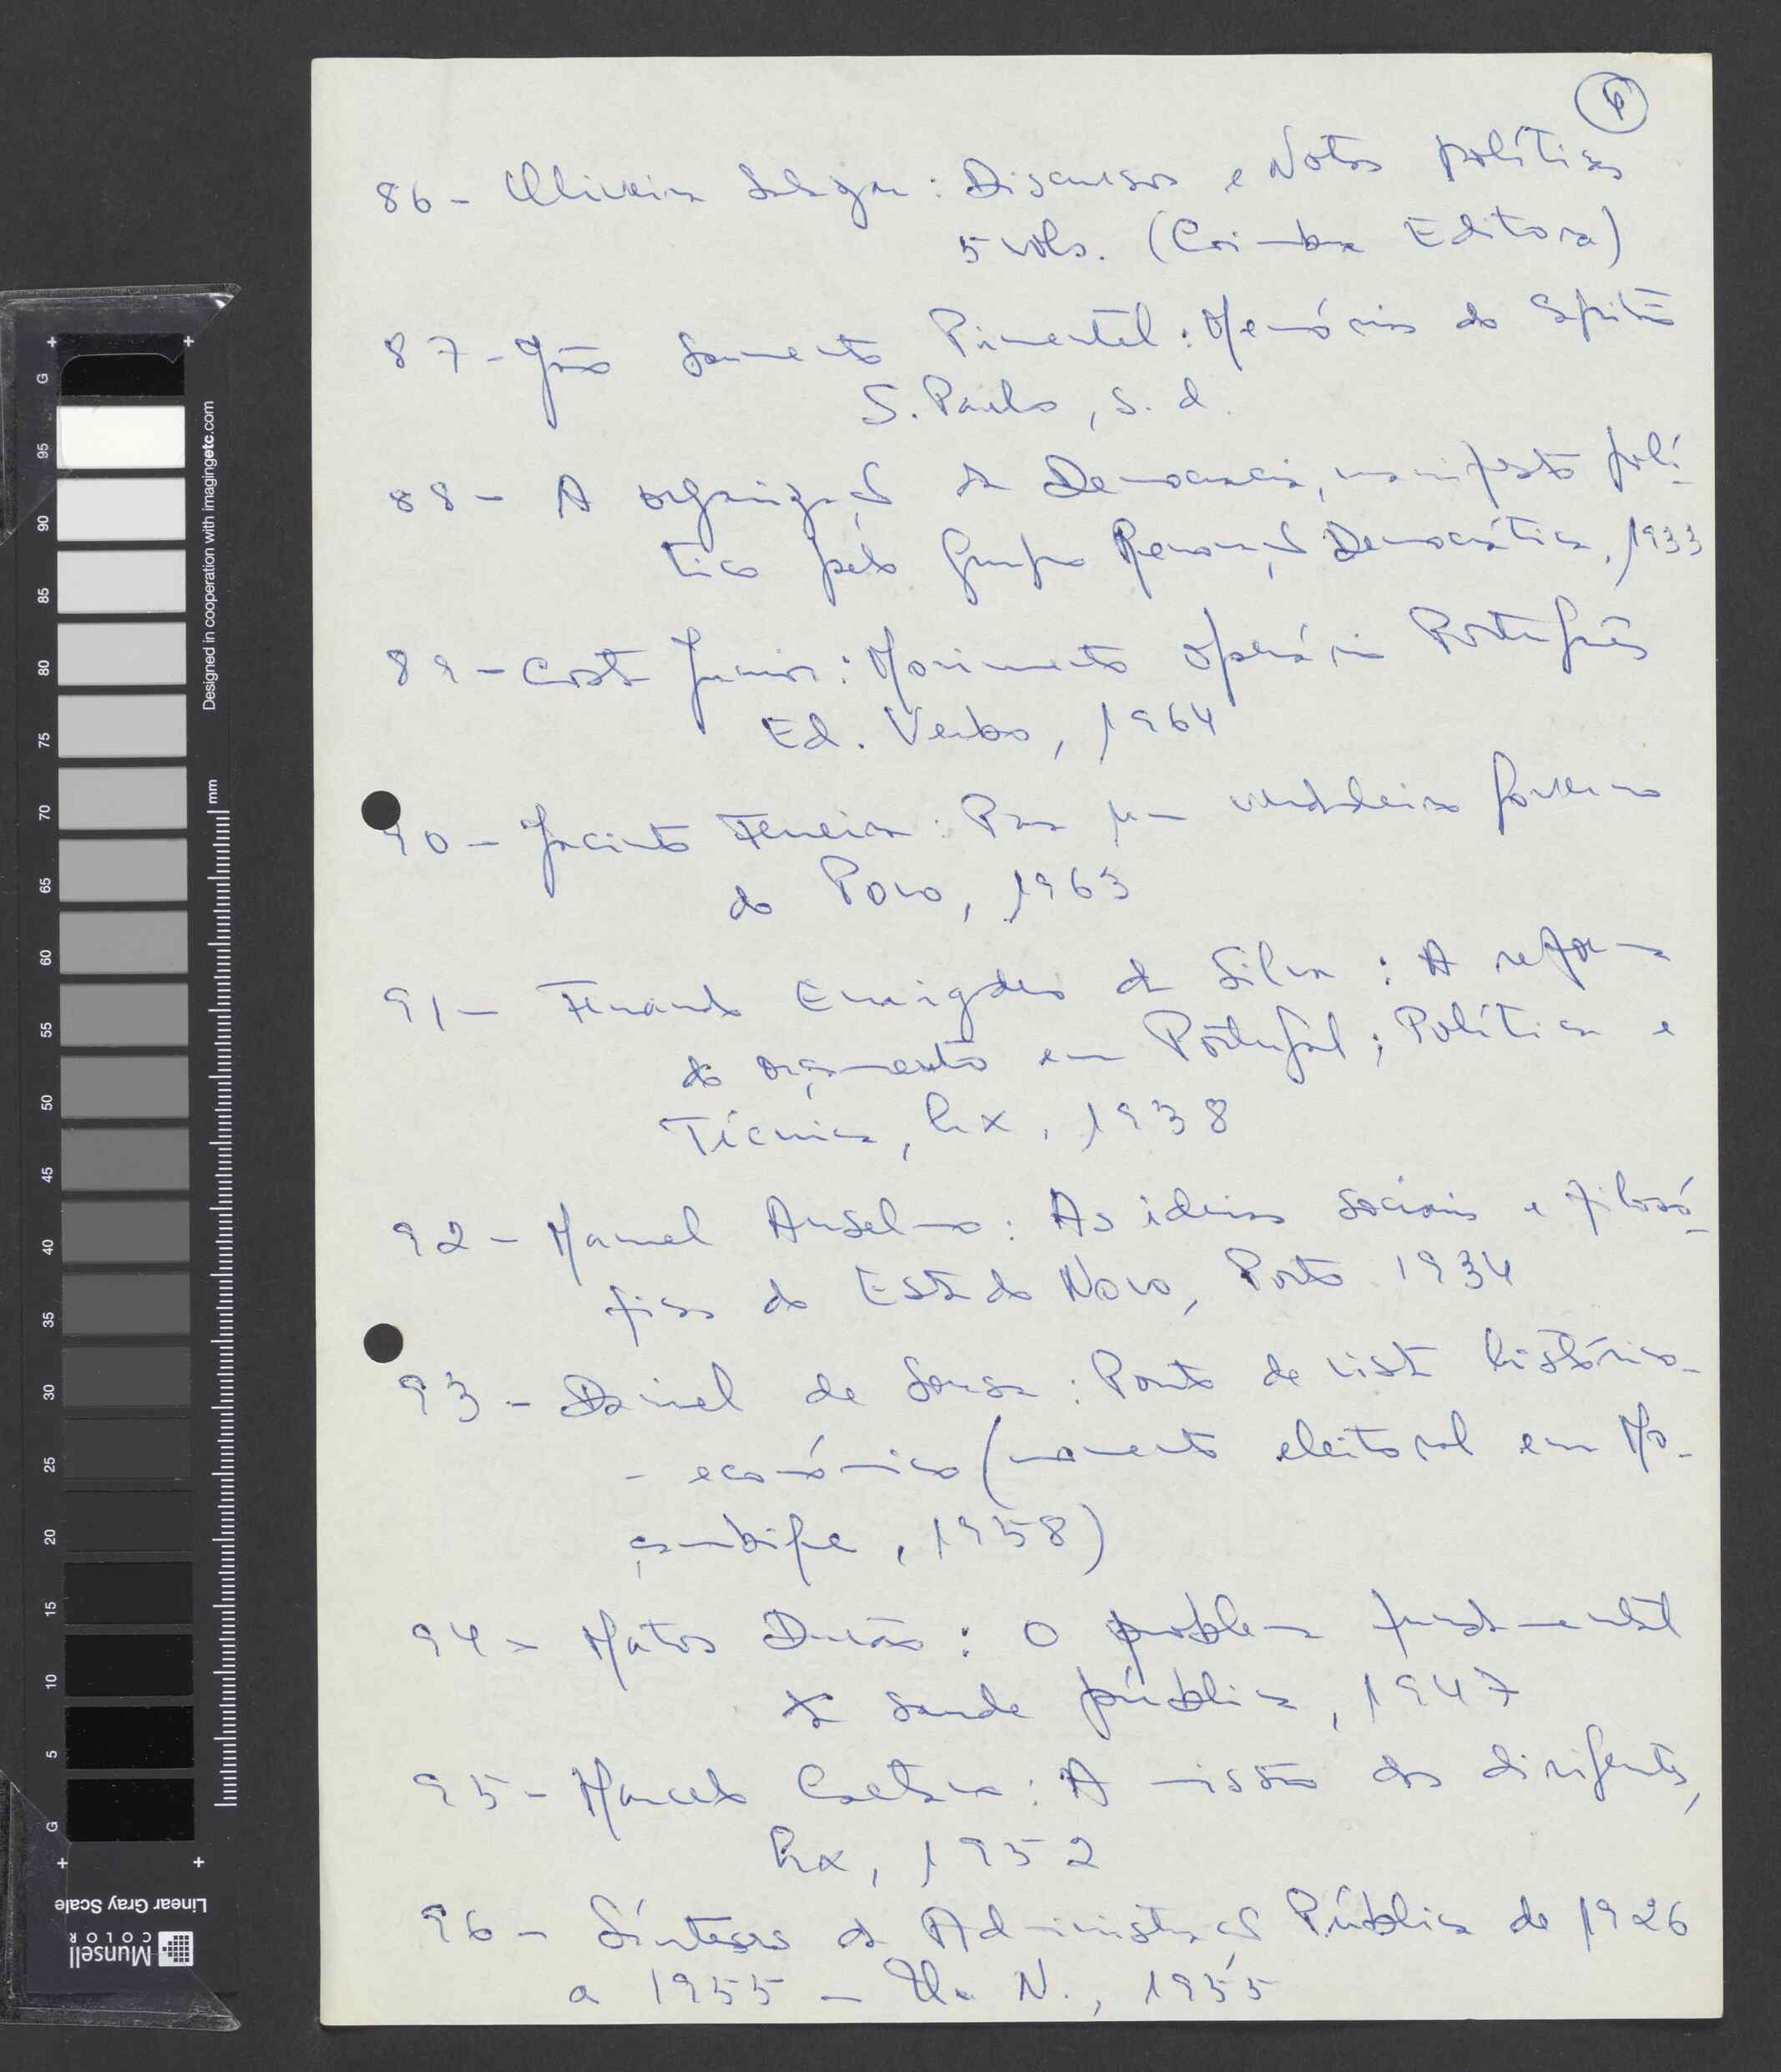 6
86 - Oliveira Salazar: Discursos e Notas políticas
5 vols. (Coimbra Editora)
87 - João Sarmento Pimentel: Memórias do Capitão
S. Paulo, s. d.
88 - A organização da Democracia, manifesto polí-
tico pelo Grupo Renovação Democrática, 1933
89 - Costa Junior: Movimento Operário Português
Ed. Verbo, 1964
90 - Jacinto Ferreira: Para um verdadeiro governo
do Povo, 1963
91 - Fernando Emigdio da Silva: A reforma
do orçamento em Portugal; Política e
Técnica, Lx, 1938
92 - Manuel Anselmo: As ideias sociais e filosó-
ficas do Estado Novo, Porto 1934
93 - Daniel de Sousa: Ponto de vista histórico-
- económico (momento eleitoral em Mo-
çambique, 1958)
94 - Matos Durão: O problema fundamental
da saude pública, 1947
95 - Marcelo Caetano: A missão dos dirigentes,
Lx, 1952
96 - Sínteses da Administração Pública de 1926
a 1955 - U. N., 1955
Designed in cooperation with imagingetc.com
mm
G
95
90
85
80
75
70
65
60
55
50
45
40
35
30
25
20
15
10
5
G
Linear Gray Scale
Munsell
COLOR